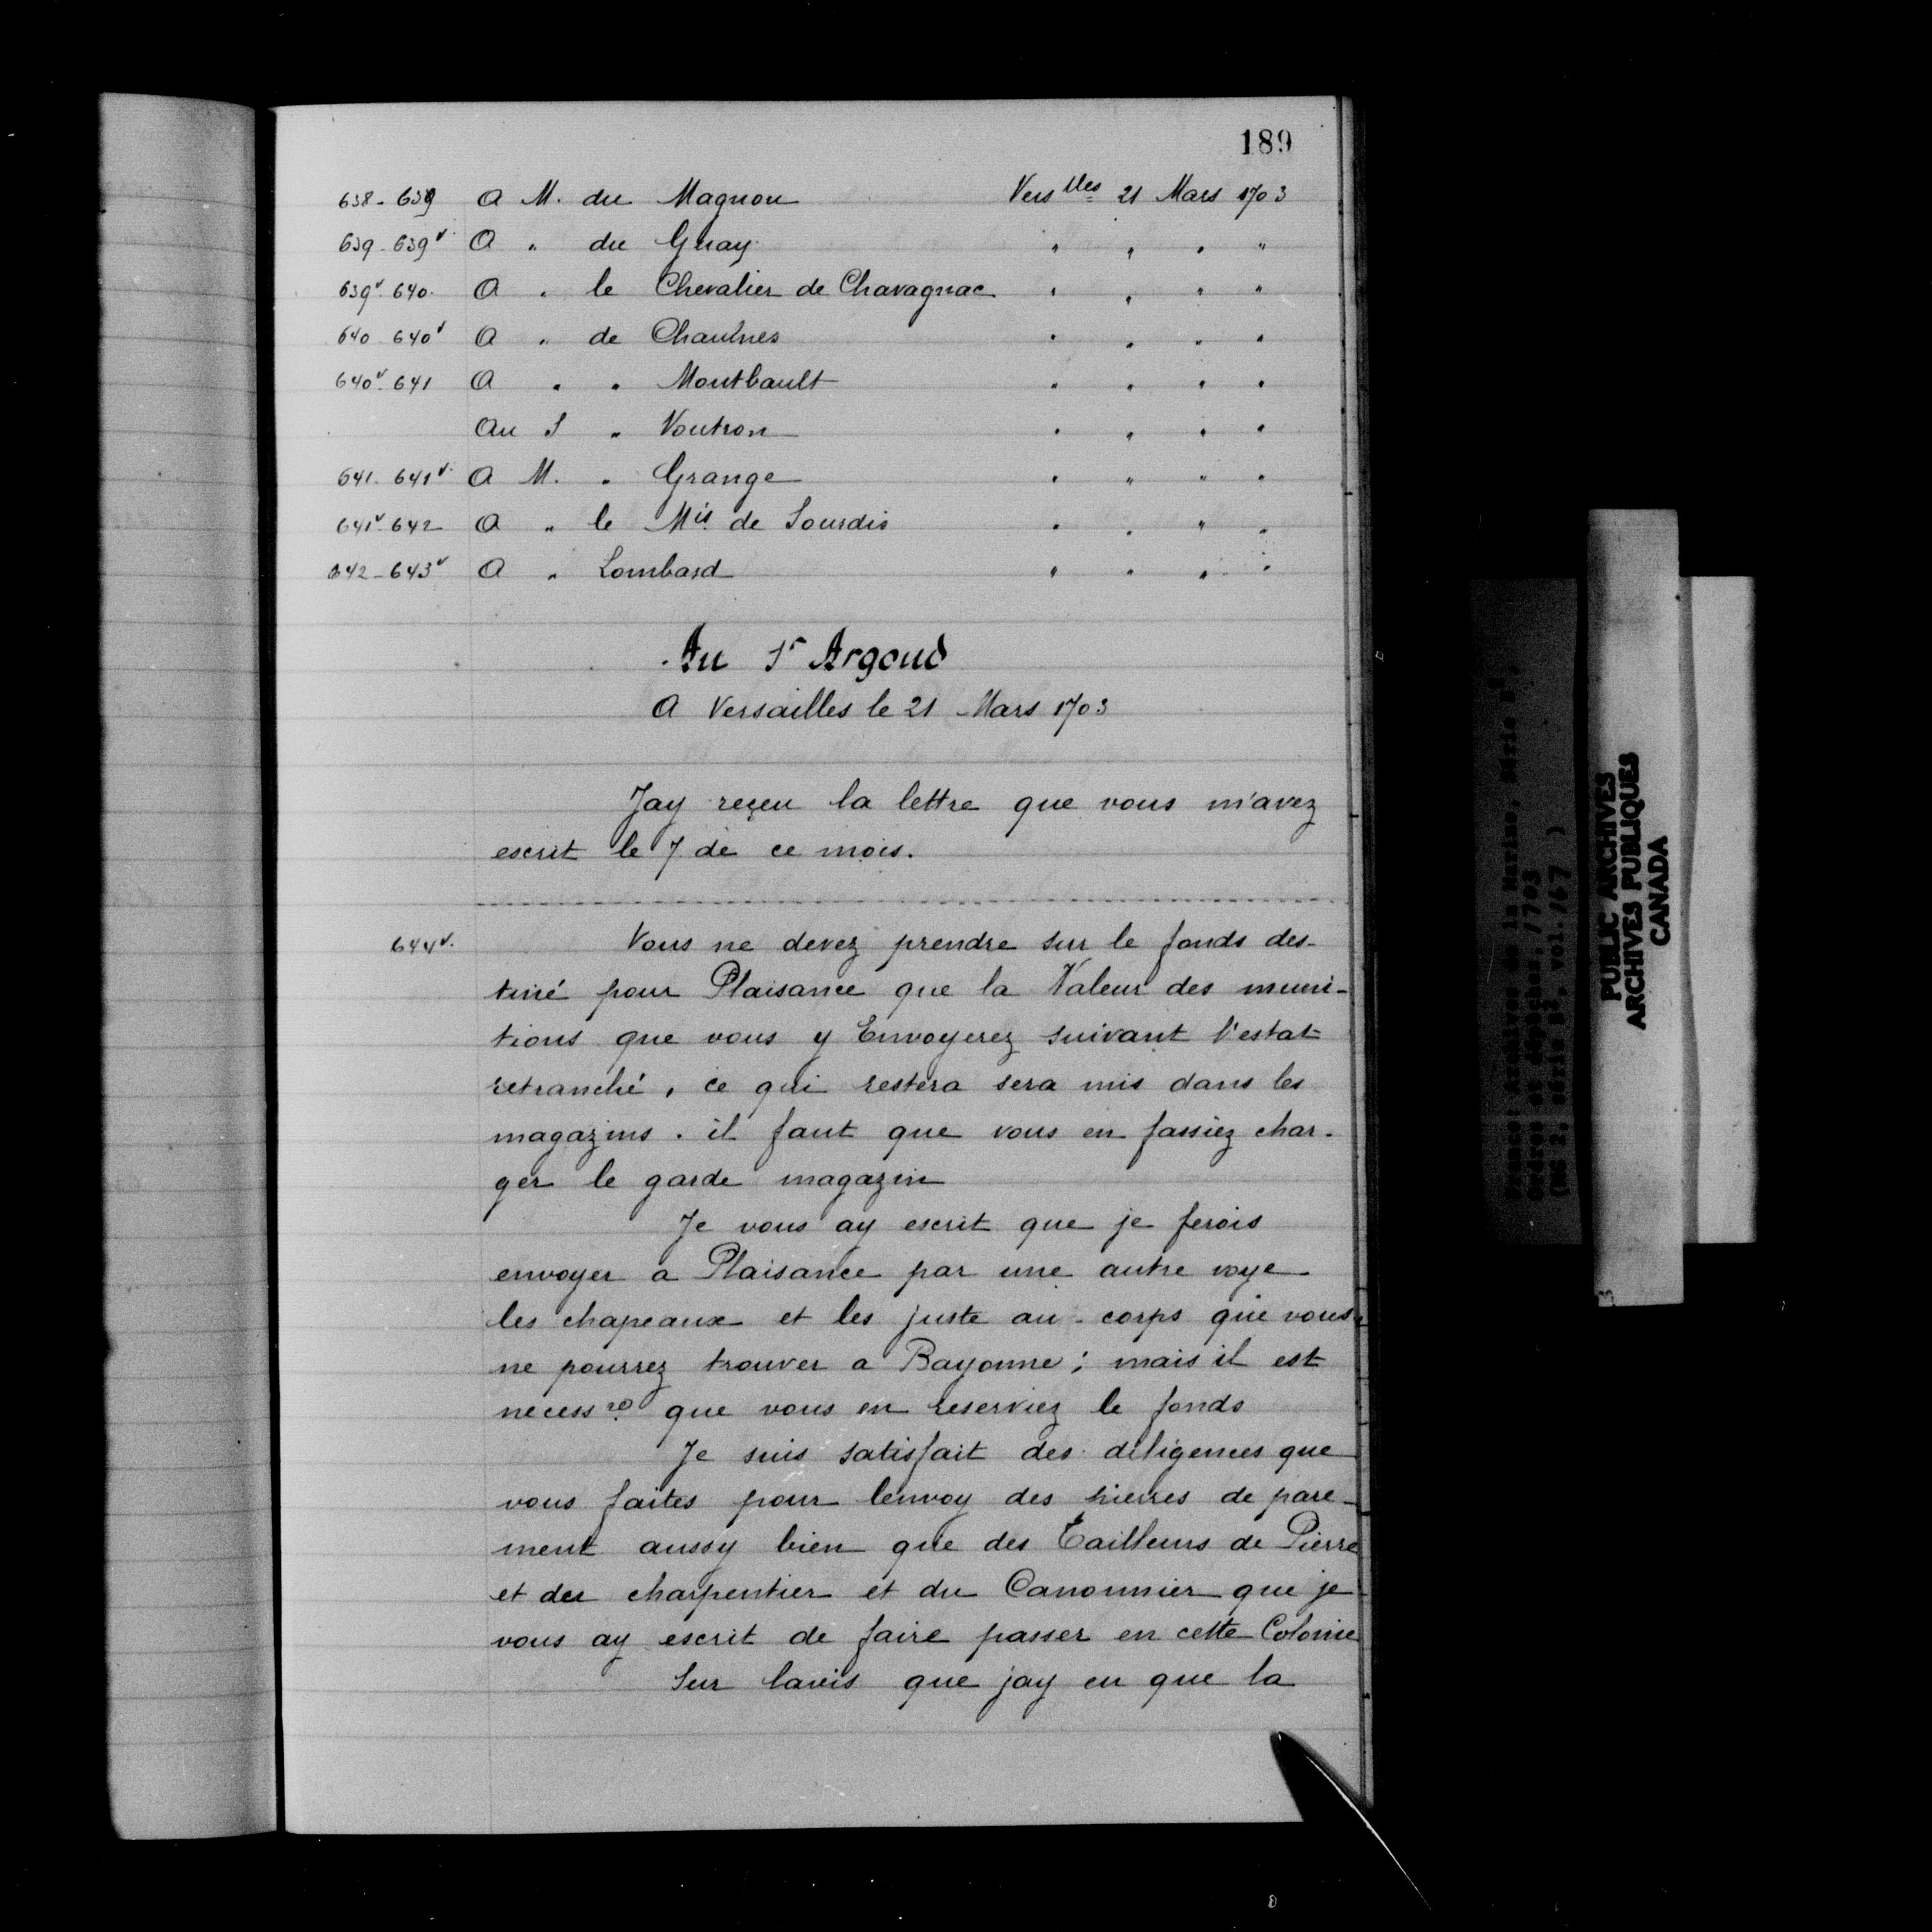 189
638-639 A M. du Magnou Vers lles 21 Mars 1703
639-639v A " du Guay " " " "
639v-640 A " le Chevalier de Chavagnac " " " "
640-640v A " de Chaulnes " " " "
640v-641 A " " Montbault " " " "
Au S " Voutron " " " "
641-641v A M. " Grange " " " "
641v-642 A " le Mis de Sourdis " " " "
642-643v A " Lombard " " " "
Au Sr Argoud
A Versailles le 21 Mars 1703
Jay reçeu la lettre que vous m'avez
escrit le 7 de ce mois.
644v. Vous ne devez prendre sur le fonds des-
tiné pour Plaisance que la Valeur des muni-
tions que vous y Envoyerez suivant l'estat
retranché, ce qui restera sera mis dans les
magazins. il faut que vous en fassiez char-
ger le garde magazin
Je vous ay escrit que je ferois
envoyer a Plaisance par une autre voye
les chapeaux et les juste au-corps que vous
ne pourrez trouver a Bayonne; mais il est
necessre que vous en reserviez le fonds
Je suis satisfait des diligences que
vous faites pour lenvoy des pierres de pare-
ment aussy bien que des Tailleurs de Pierre
et des charpentier et du Canonnier que je
vous ay escrit de faire passer en cette Colonie
Sur lavis que jay eu que la
PUBLIC ARCHIVES
ARCHIVES PUBLIQUES
CANADA
France: Archives de la Marine, Série B,
Ordres et dépêches, 1703
(MG 2, série B2, vol. 167)